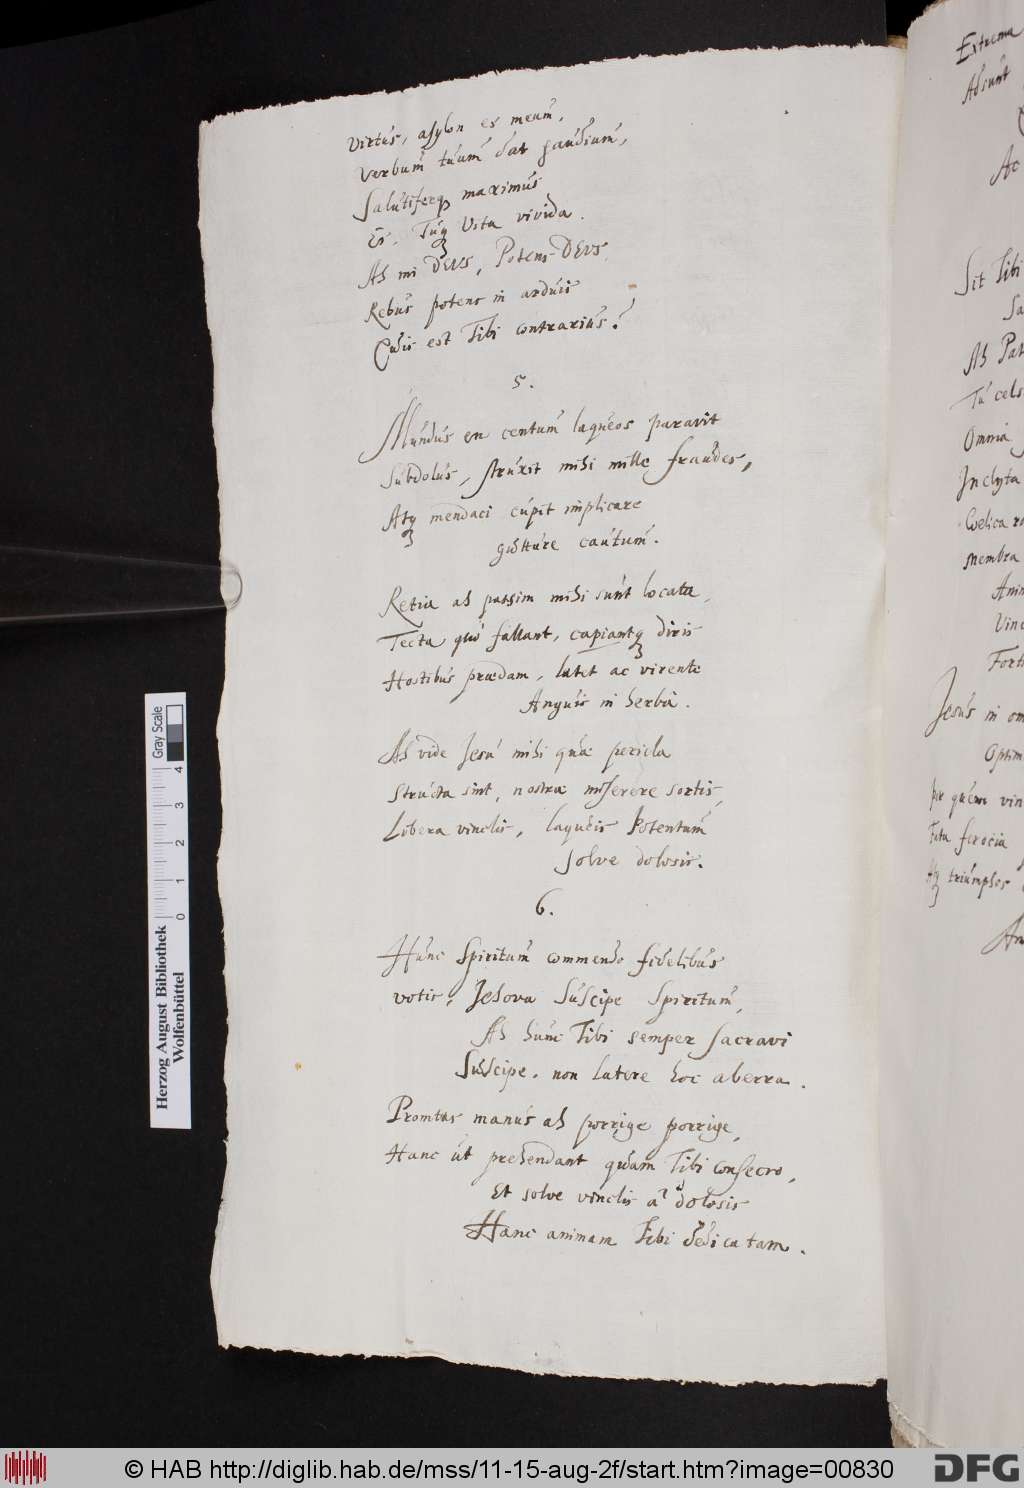 Virtus, asylon es meum,
Verbum tuum dat gaudium,
Salutiferq maximus
Es, Tuq Vita vivida.
Ah mi DEUS, Potens DEUS,
Rebus potens in arduis
Quis est Tibi contrarius?
5.
Mundus en centum laqueos paravit
Subdolus, struxit mihi mille fraudes,
Atq mendaci cupit implicare
gutture cautum.
Retia ah passim mihi sunt locata,
Tecta quo fallant, capiantq diris
Hostibus praedam, latet ac virente
Anguis in herba.
Ah vide Jesu mihi quae pericla
Structa sint, nostrae miserere sortis,
Libera vinclis, laqueis Potentum
solve dolosis.
6.
Hunc Spiritum commendo fidelibus
votis, Jehova Suscipe Spiritum,
Ah hunc Tibi semper sacravi
Suscipe, non latere hoc aberra.
Promtas manus ah porrige porrige,
Hanc ut prehendant quam Tibi consecro,
Et solve vinclis a dolosis
Hanc animam Tibi dedicatam.
Extrema
Absunt
Ac
Sit Tibi
Sa
Ah Pat
Tu cels
Omnia
Inclyta
Coelica ro
Membra
Anim
Vinc
Forti
Jesus in om
Optim
per quem vin
Fata ferocia
Atq triumphos
An
Herzog August Bibliothek
Wolfenbüttel
0 1 2 3 4
Gray Scale
© HAB http://diglib.hab.de/mss/11-15-aug-2f/start.htm?image=00830
DFG